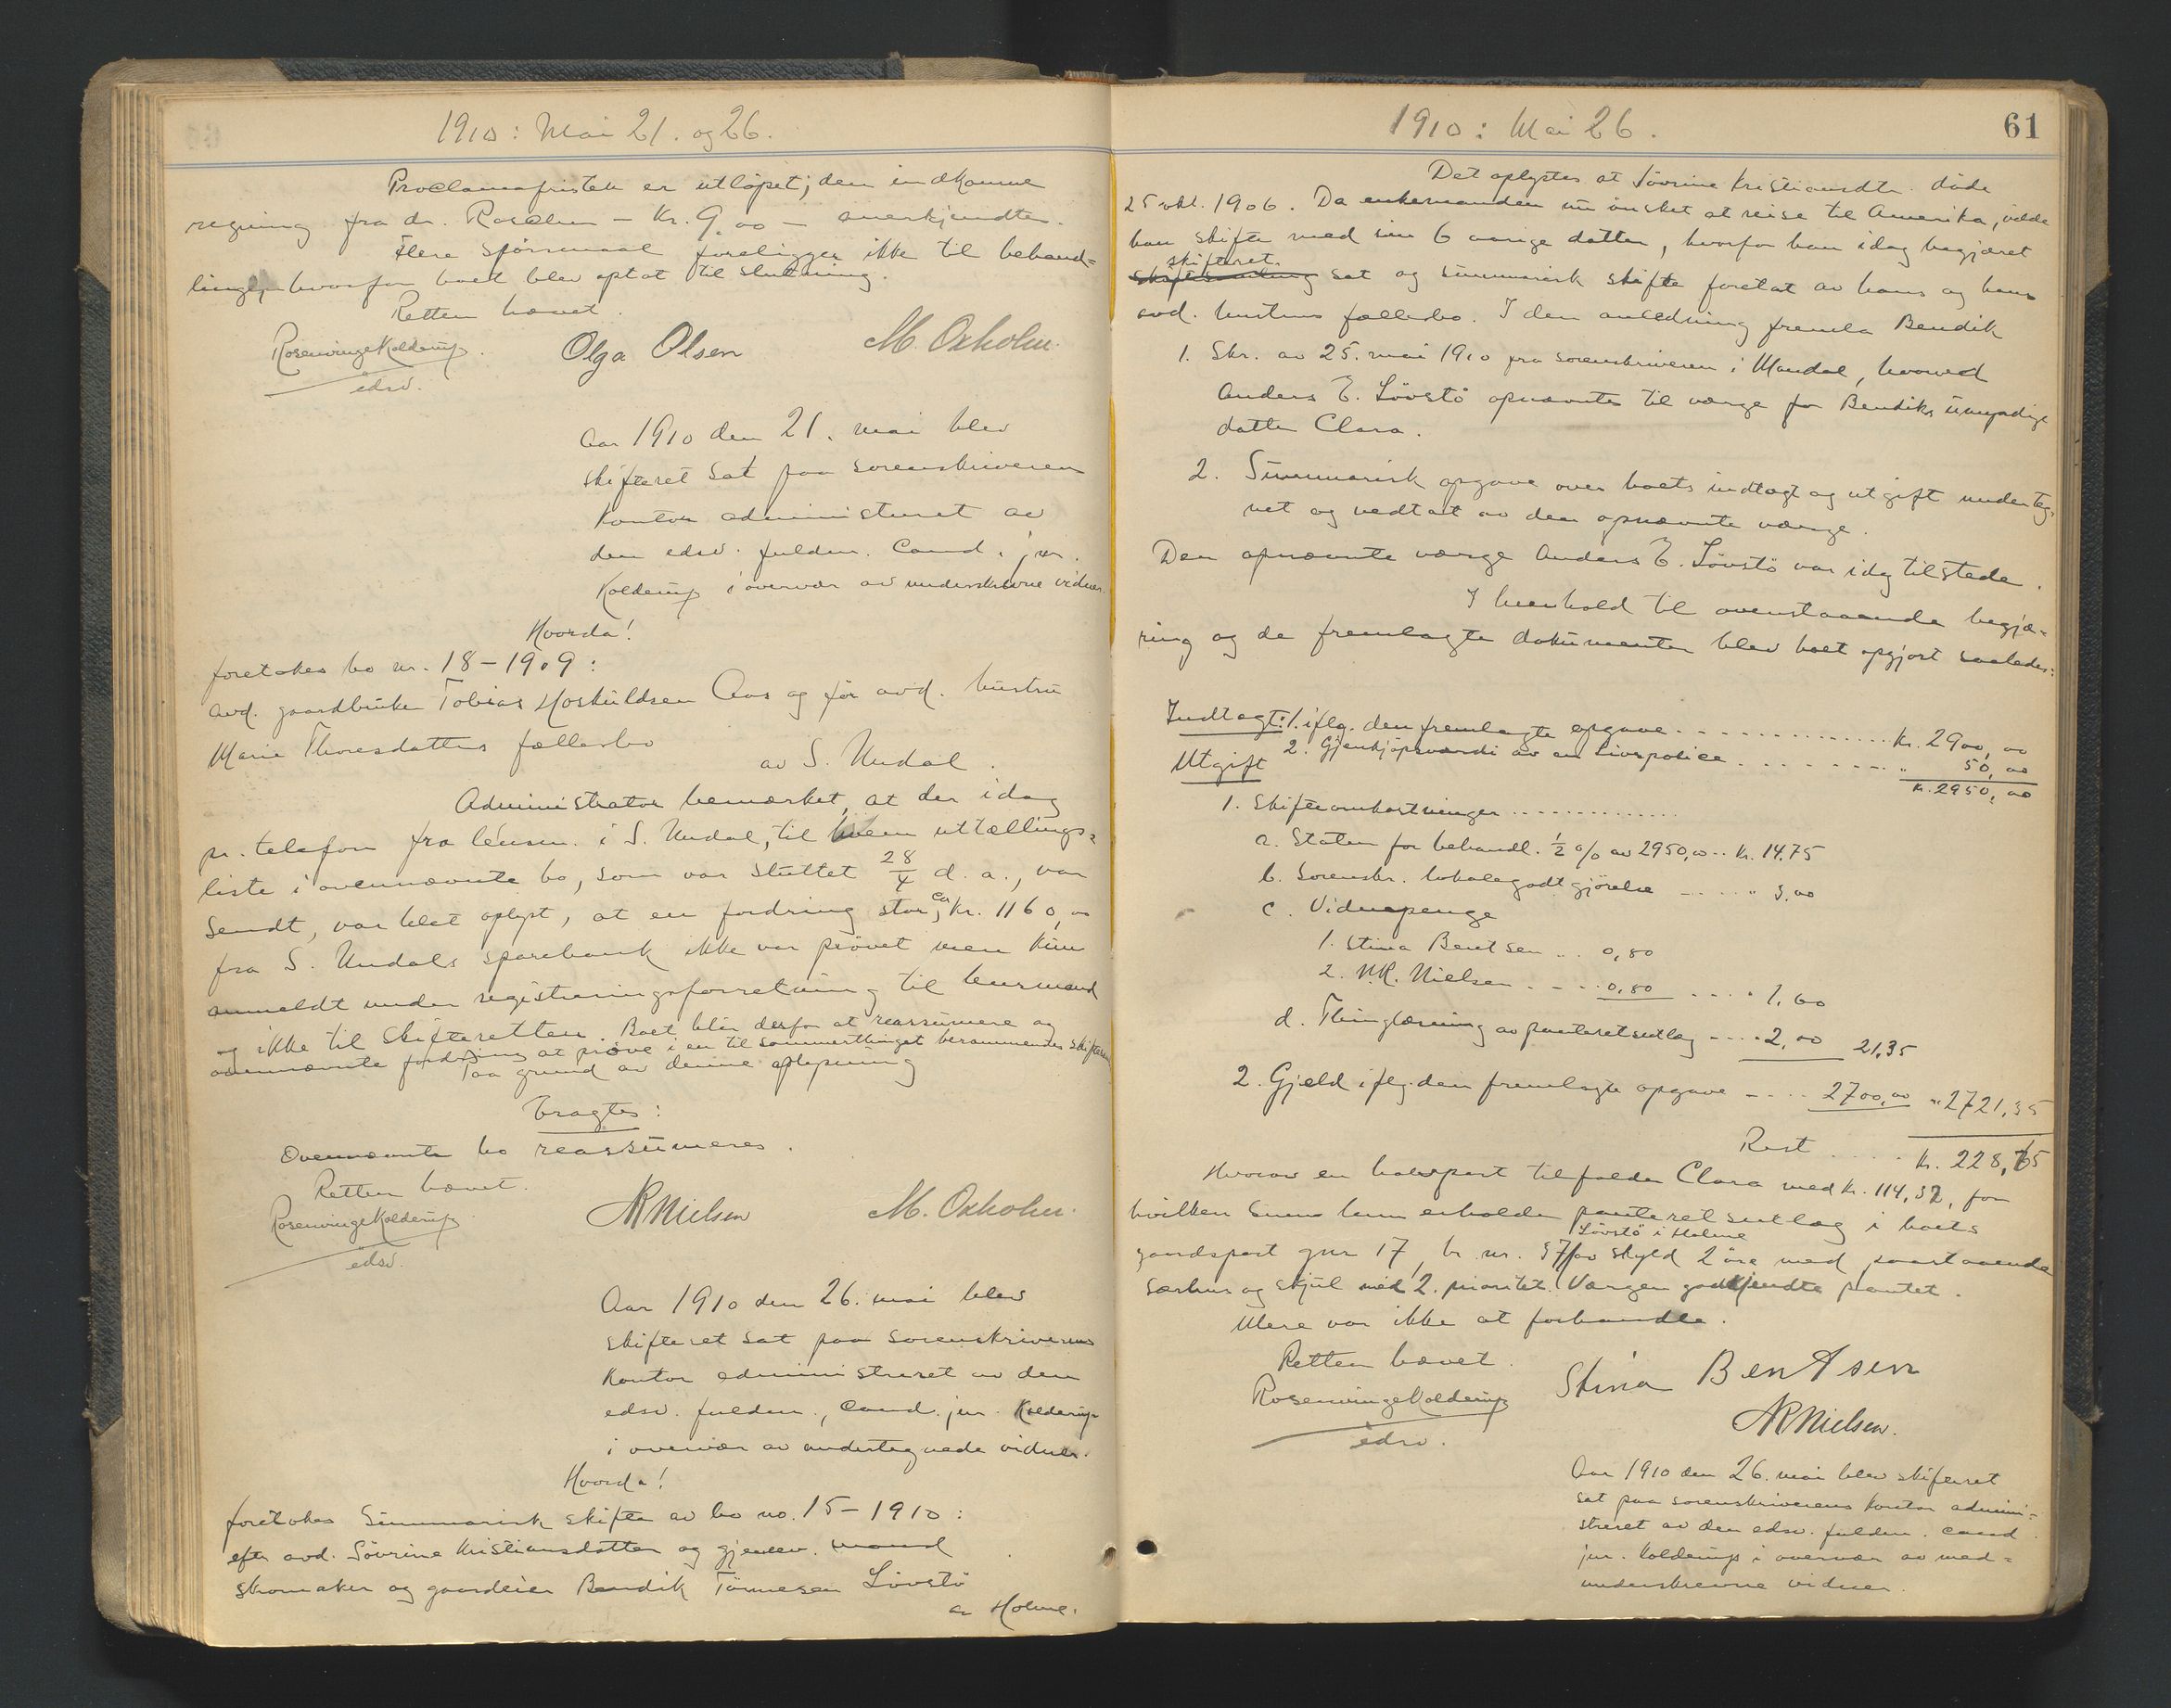 1910: Mai 21. og 26.
Proclamafristen er utløpet; den indkomne
regning fra dr. Rosalien – Kr. 9.00 – anerkjendtes.
Flere spörsmaal foreligger ikke til behand=
ling, hvorfor boet blev optat til slutning.
Retten hævet.
Rosenvinge Kolderup
edsv.
Olga Olsen
M. Oxholm.
Aar 1910 den 21. mai blev
skifteret sat paa sorenskriveren
kontor administreret av
den edsv. fuldm. Cand. jur.
Kolderup i overvær av underskrevne vidner.
Hvorda!
foretokes bo nr. 18–1909:
avd. gaardbruker Tobias Hoskuldsen Aas og før avd. hustru
Marie Thoresdatters fællesbo
av S. Undal.
Administrator bemærket, at der idag
pr. telefon fra lensm. i S. Undal, til hvem uttællings=
liste i ovennævnte bo, som var sluttet 28/4 d. a., var
sendt, var blet oplyst, at en fordring stor ca. Kr. 1160,00
fra S. Undals sparebank ikke var prövet men kun
anmeldt under registreringsforretning til lensmand
og ikke til skifteretten. Boet blir derfor at reassumere og
ovennævnte fordring at pröve i en til sommerthinget berammendes skiftesaml.
Paa grund av denne oplysning
Eragtes:
Ovennævnte bo reassumeres.
Retten hævet.
Rosenvinge Kolderup
edsv.
NR Nielsen
M. Oxholm.
Aar 1910 den 26. mai blev
skifteret sat paa sorenskriverens
kontor administreret av den
edsv. fuldm., cand. jur. Kolderup
i overvær av undertegnede vidner.
Hvorda!
foretokes Summarisk skifte av bo no. 15–1910:
efter avd. Sövrine Kristiansdatter og gjenlev. mand
skomaker og gaardeier Bendik Tönnesen Lövstö
a Holme.
1910: Mai 26.
61
Det oplystes at Sövrine Kristiansdtr. döde
25 okt. 1906. Da enkemanden nu önsket at reise til Amerika, vilde
han skifte med sin 6 aarige datter, hvorfor han idag begjæret
skifteret
skiftesamling sat og summarisk skifte foretat av hans og hans
avd. hustrus fællesbo. I den anledning fremla Bendik
1. Skr. av 25. mai 1910 fra sorenskriveren i Mandal, hvorved
Anders E. Lövstö opnævntes til værge for Bendiks umyndige
datter Clara.
2. Summarisk opgave over boets indtægt og utgift underteg-
net og vedtat av den opnævnte værge.
Den opnævnte værge Anders E. Lövstö var idag tilstede.
I henhold til ovenstaaende begjæ=
ring og de fremlagte dokumenter blev boet opgjort saaledes:
Indtægt: 1. iflg. den fremlagte opgave . . . . . . . . . . . . Kr. 2900,00
2. Gjenkjöpsværdi av en Livspolice . . . . . . . . . " 50,00
Utgift
Kr. 2950,00
1. Skifteomkostninger . . . . . . . . . . . . . .
a. Staten for behandl. ½ % av 2950,00 .. Kr. 14.75
b. Sorenskr. lokalegodtgjörelse . . . . . " 3,00
c. Vidnepenge
1. Stina Bentsen . . . 0,80
2. N.R. Nielsen . . . . 0,80 . . . . 1,60
d. Thinglæsning av panteretsutlæg . . . . 2,00 21,35
2. Gjeld iflg. den fremlagte opgave . . . . 2700,00 " 2721,35
Rest . . . . . Kr. 228,65
Hvorav en halvpart tilfalder Clara med Kr. 114,32, for
hvilken sum hun erholder panteretsutlæg i boets
Lövstö i Holme
gaardspart gnr 17, br. nr. 37 av skyld 2 öre med paastaaende
særhus og skjul med 2. prioritet. Værgen godkjendte pantet.
Mere var ikke at forhandle.
Retten hævet.
Rosenvinge Kolderup
edsv.
Stina Bentsen
NR Nielsen.
Aar 1910 den 26. mai blev skifteret
sat paa sorenskriverens kontor admini=
streret av den edsv. fuldm. cand.
jur. Kolderup i overvær av med=
underskrevne vidner.